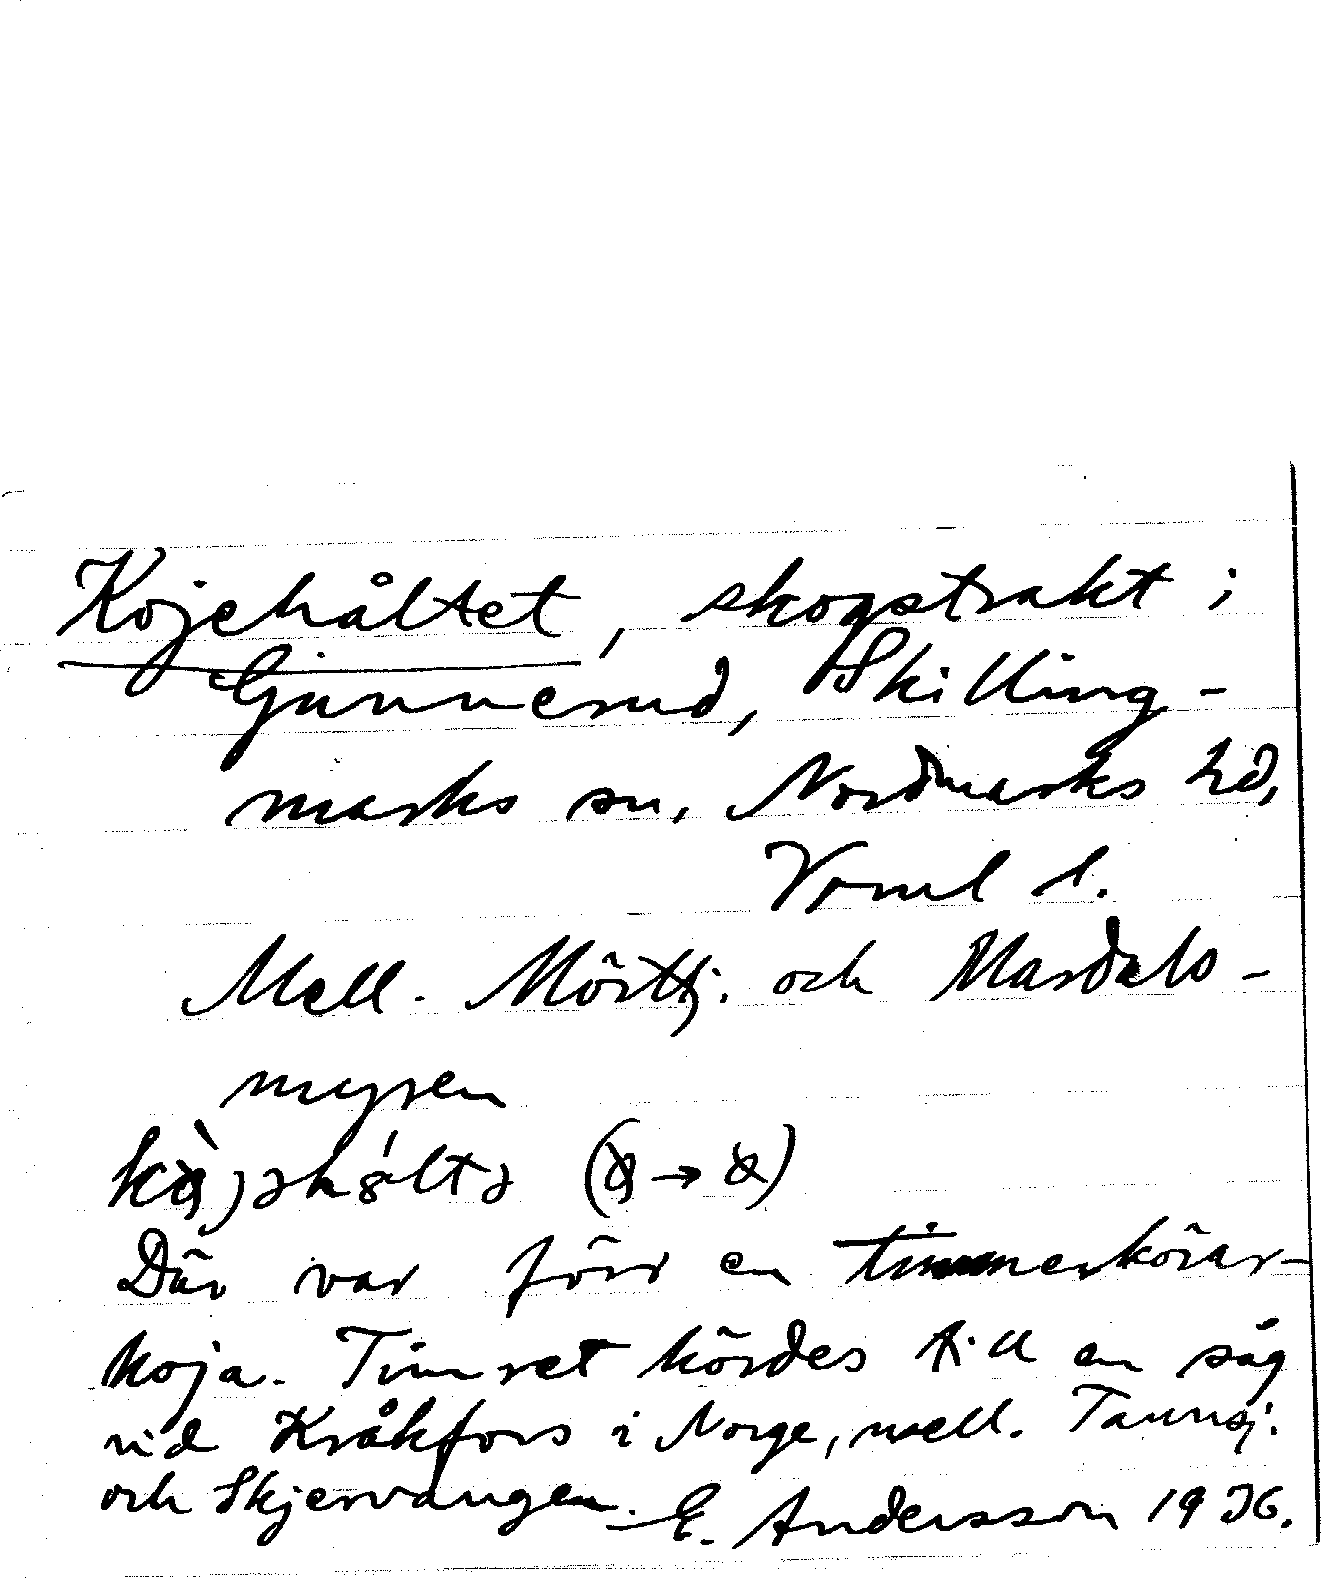 Kojehåltet, skogstrakt i
Gunnerud, Skilling-
marks sn, Nordmarks hd,
Vrml l.
Mell. Mörttj. och Mardals-
myren
Där var förr en timmerkörar-
koja. Timret kördes till en såg
vid Kråkfors i Norge, mell. Tannsj.
och Skjervangen. E. Andersson 1936.